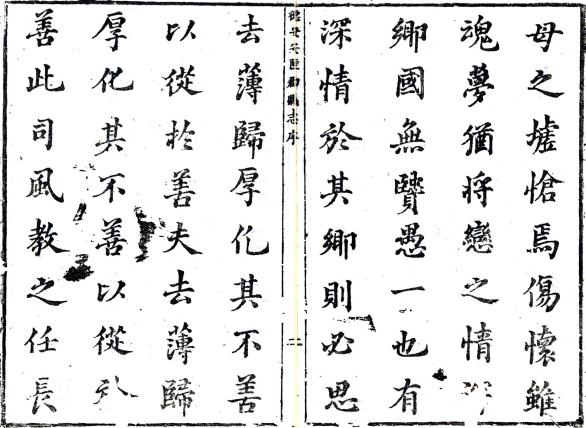 母之墟愴焉傷懷雖
魂夢猶將戀之情
鄉國無賢愚一也有
深情於其鄉則必思
志序
二
去薄歸厚化其不善
以從於善夫去薄歸
厚化其不善以從於
善此司風教之任長